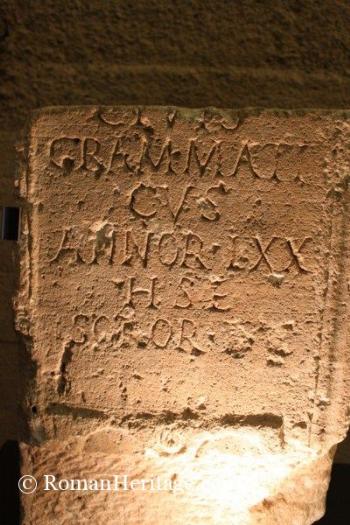 GRAMMATI
CVS
ANNOR LXX
H S E
© RomanHeritage